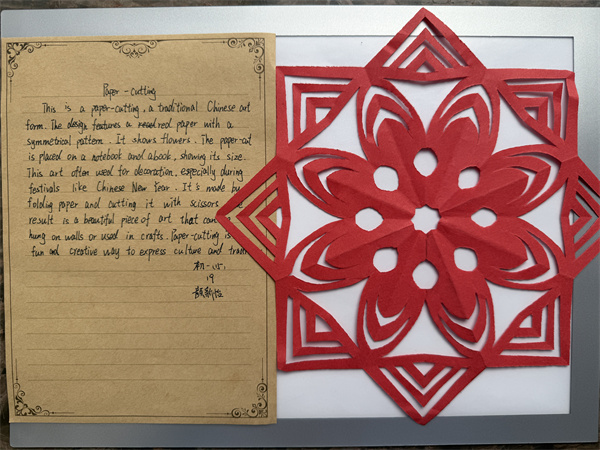 Paper-cutting
This is a paper-cutting, a traditional Chinese art
form. The design features a red paper with a
symmetrical pattern. It shows flowers. The paper-cut
is placed on a notebook and abook, showing its size.
This art often used for decoration, especially during
festivals like Chinese New Year. It's made by
folding paper and cutting it with scissors.
result is a beautiful piece of art that can
hung on walls or used in crafts. Paper-cutting is
fun and creative way to express culture and
初一(5)
19